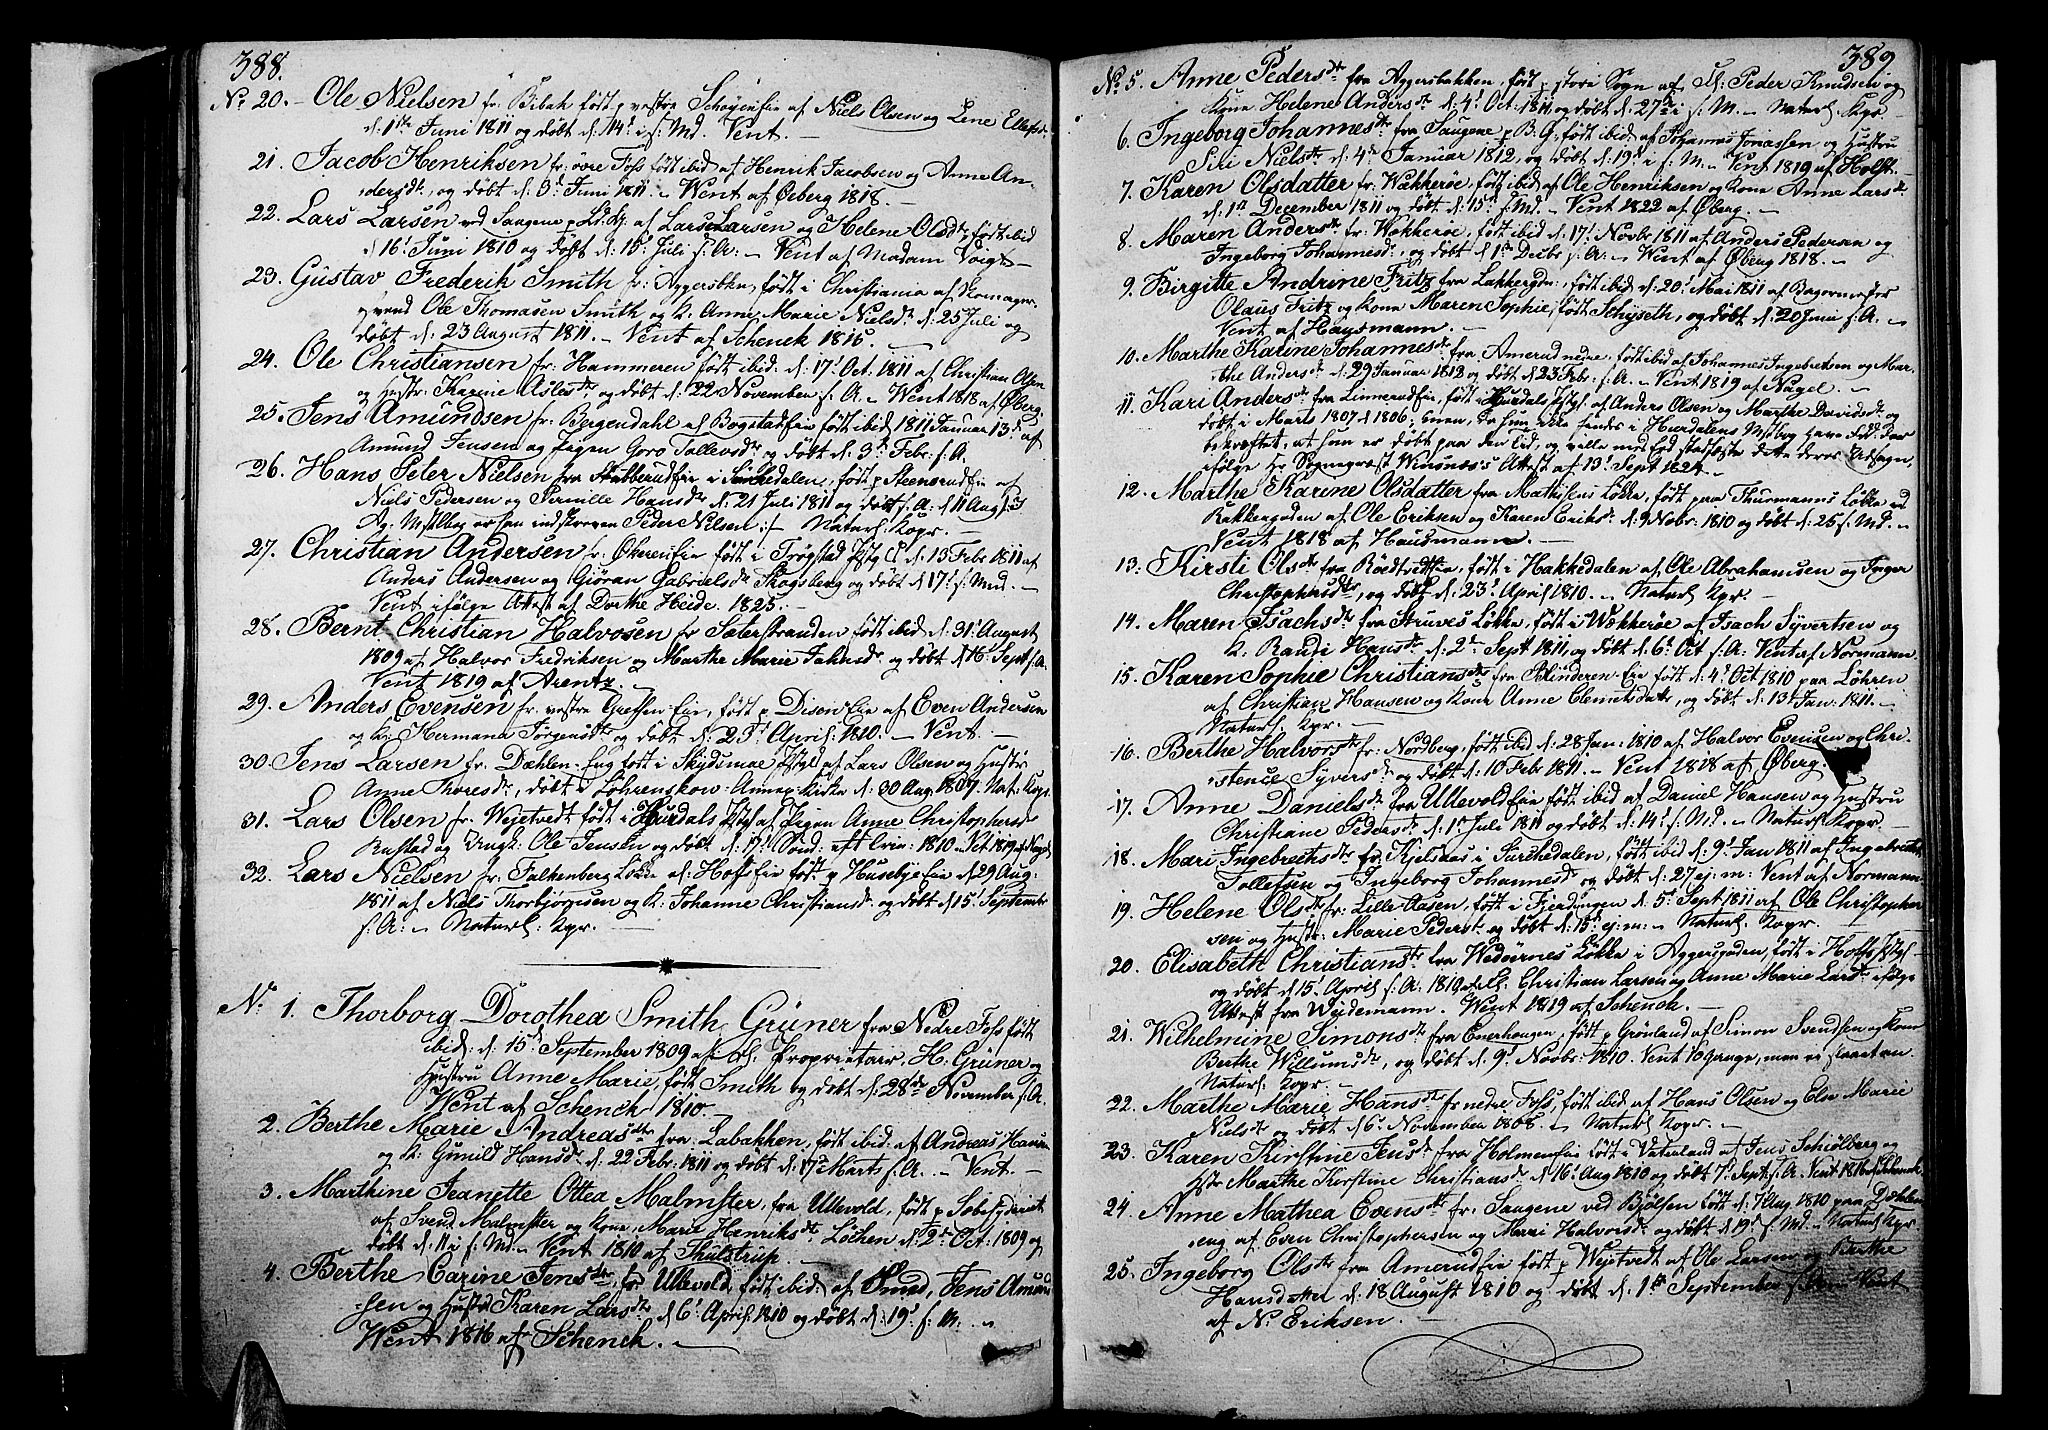 388.
No 20. Ole Nielsen fr. Bibak født p vestre af Niels Olsen og Lene
d. 1ste Juni 1811 og døbt d. 14d i s. Md. Vent. —
21. Jacob Henriksen fr. øvre Foss født ibid af Henrik Jacobsen og Anne An-
dersdtr, og døbt d. 3d Juni 1811. — Vent af Øeberg 1818. —
22. Lars Larsen ved Saugene p af Lars Larsen og Helene Olsdtr født ibid
d 16d Juni 1810 og døbt d: 15d Juli s. A: — Vent af Madam Voigt —
23. Gustav Frederik Smith fr: Aggersbkn, født i Christiania af
svend Ole Thomasen Smith og K. Anne Marie Nielsdtr d: 25 Juli og
døbt d: 23 August 1811. — Vent af Schenck 1815. —
24. Ole Christiansen fr: Hammeren født ibid. d: 17d Oct. 1811 af Christian Olsen
og Hustr: Karine Aslesdtr, og døbt d: 22 November s. A. — Vent 1818 af Øberg.
25. Jens Amundsen fr. Bergendahl af Bogstadeie født ibid 1811 Januar 13d af
Amund Jensen og Pigen Goro Tollevsdtr og døbt d: 3d Febr. s. A.
26. Hans Peter Nielsen fra Stubberudeie i Sørkedalen, født p Steensrudeie af
Niels Pedersen og Pernille Hansdtr d: 21 Juli 1811 og døbt s. A: d 11 Aug:
Ag. Mstlbog er han indskreven Peder Nielsen :/- Naturl. Kopr.
27. Christian Andersen fr. Økereneie født i Trøgstad Pstgl d: 13 Febr 1811 af
Anders Andersen og Giøran Gabrielsdtr Skogsberg og døbt d. 17d s. Md. —
Vent ifølge Attest af Dorthe Heide. 1825. —
28. Bernt Christian Halvosen fr Sæterstranden født ibid d: 31d August
1809 af Halvor Fredriksen og Marthe Marie Jahnsdtr og døbt d 16d Sept s. A.
Vent 1819 af Arentz. —
29. Anders Evensen fr. vestre Grefsen Eie, født p Disen Eie af Even Andersen
og K: Hermana Jørgensdtr og døbt d: 23d April: 1810. — Vent. —
30. Jens Larsen fr. Dæhlen-Eng født i Skydsmoe Pstgl af Lars Olsen og Hustr
Anne Thoresdtr, døbt i Løhrenskow: Annex-Kirke d: 30 Aug. 1807. Nat: Kopr.
31. Lars Olsen fr. Wejetvedt født i Hurdals Pstgl af Pigen Anne Christophersdtr
Rustad og Ungk: Ole Jensen og døbt d: 17d Sønd: eft Trin: 1810.
32. Lars Nielsen fr. Falkenberg Løkke af Hoffs Eie født p Husebyeie d. 29 Aug:
1811 af Niels Thorbjørnsen og K: Johanne Christiansdtr og døbt d: 15d September
s. A: — Naturl: Kpr. —
No 1. Thorborg Dorothea Smith Grüner fra Nedre Foss født
ibid: d: 15d September 1809 af Proprietair H: Grüner og
Hustru Anne Marie, født Smith og døbt d: 28de November s. A.
Vent af Schenck 1810. —
2. Berthe Marie Andreasdtr fra Labakken, født ibid: af Andreas Hansen
og K: Gunild Hansdtr d: 22 Febr. 1811 og døbt d: 17d Marts s. A. — Vent. —
3. Marthine Jeanette Ottea Malmster, fra Ullevold, født p
af Svend Malmster og Kone Marie Henriksdtr Løchen d: 2d Oct: 1809 og
døbt d: 11 i s. Md. — Vent 1810 af Thulstrup.
4. Berthe Carine Jensdtr, fra Ullevold, født ibid: af Smed, Jens Amund-
sen og Hustr Karen Larsdtr d: 6d April 1810 og døbt d: 19d s. M. —
Vent 1816 af Schenck. —
389
No 5. Anne Pedersdtr fra Aggersbakken, født p store Sogn af Peder Knudsen og
Kone Helene Andersdtr d: 4d Oct: 1811 og døbt d: 27de i s. M. — Naturl. Kpr —
6. Ingeborg Johannesdtr fra Saugene p B. G: født ibid: af Johannes Jonassen og Hustru
Siri Nielsdtr d: 4d Januar 1812, og døbt d: 19d i s. M. — Vent 1819 af Holst.
7. Karen Olsdatter fr: Wækkerøe, født ibid: af Ole Henriksen og Kone Anne Larsdtr
d. 1ste December 1811 og døbt d: 15d s. Md. — Vent 1822 af Øberg. —
8. Maren Andersdtr fr: Wækkerøe, født ibid d: 17d Novbr 1811 af Anders Pedersen og
Ingeborg Johannesdtr, og døbt d: 1ste Decbr s. A: — Vent af Øberg 1818. —
9. Birgitte Andrine Fritz fra Løkkergdn: født ibid: d: 20d Mai 1811 af Bagermester
Olaus Fritz og Kone Maren Sophie, født Schyseth, og døbt d: 20 Juni s. A. —
Vent af Hausmann. —
10. Marthe Karine Johannesdtr fra Amerud nedre, født ibid af Johannes Ingebretsen og Mar-
the Andersdtr d: 29 Januar 1812 og døbt d 23 Febr. s. A. — Vent 1819 af Nagel. —
11. Kari Andersdtr fra Linnerudeie, født i Hurdals Pstgl. af Anders Olsen og Marthe Davidsdtr og
døbt i Marts 1807 el 1806; men, da hun ikke findes i Hurdalens Mstbog have
bekræftet, at hun er døbt paa den tid, og ville med Eed stadfæste dette deres Udsagn,
ifølge Hr Sognepræst Attest af 13d Sept 1824. —
12. Marthe Karine Olsdatter fra Mathisens Løkke, født paa Thurmanns Løkke ved
Bakkegaden af Ole Eriksen og Karen Eriksdtr d: 9 Nobr: 1810 og døbt d: 25 s. Md. —
Vent 1818 af Hausmann. —
13. Kirsti Olsdtr fra Rødtvedteie, født i Hakkedalen af Ole Abrahamsen og Inger
Christophersdtr, og døbt d: 23d April 1810. — Naturl. Kpr. —
14. Maren Isachsdtr fra Struves Løkke, født i Wækkerøe af Isach Syvertsen og
K. Randi Hansdtr d: 2d Sept 1811, og døbt d: 6d Oct s. A: Vent af Normann.
15. Karen Sophie Christiansdtr fra Blinderen-Eie født d: 4d Oct 1810 paa Løhren
af Christian Hansen og Kone Anne Clemetsdatter, og døbt d: 13d Jan: 1811. —
Naturl. Kpr. —
16. Berthe Halvorsdtr fr: Nordberg, født ibid d: 28 Jan: 1810 af Halvor Evensen og Chri-
stence Syversdtr og døbt d: 10 Febr 1811. — Vent 1818 af Øberg.
17. Anne Danielsdtr fra Ullevoldeie født ibid af Daniel Hansen og Hustru
Christiane Pedersdtr d: 1d Juli 1811 og døbt d: 14d s. Md. — Naturl. Kopr. —
18. Mari Ingebrechtsdtr fr. Kjelsaas i Sørckedalen, født ibid d: 9d Jan 1811 af Ingebrecht
Tollefsen og Ingeborg Johannesdtr og døbt d: 27 ej: m: Vent af Normann.
19. Helene Olsdtr fr: Lille-Aasen, født i Fjerdingen d: 5d Sept 1811 af Ole Christopher-
sen og Hustr: Marie Pedersdtr og døbt d: 15d ej: m: — Naturl. Kopr. —
20. Elisabeth Christiansdtr fra Løkke i Aggersgaden, født i Hoffs Pstgl.
og døbt d 15d April s. A: 1810 af Christian Larsen og Anne Marie Larsdtr ifølge
Attest fra Wejdemann. Vent 1819 af Schenck. —
21. Wilhelmine Simonsdtr fra Enerhaugen, født p Grønland af Simon Svendsen og Kone
Berthe Willumsdtr, og døbt d: 9d Novbr: 1810. Vent 10 gange, men ei slaaet an
Naturl. Kopr. —
22. Marthe Marie Hansdtr fr nedre Foss, født ibid af Hans Olsen og Else Marie
Nielsdtr og døbt d 6d November 1808. — Naturl. Kopr. —
23. Karen Kirstine Jensdtr fra Holmeneie født i Vaterland af Jens Schiølberg og
Hstr Marthe Kirstine Christiansdtr d: 16d Aug 1810 og døbt 7d Sept: s. A. Vent 1816 af Schenck.
24. Anne Mathea Evensdtr fr. Saugene ved Bjølsen født d: 7d Aug 1810 paa Dæhlen-
eng af Even Christophersen og Mari Halvorsdtr og døbt d 19d s. Md. — Naturl. Kpr.
25. Ingeborg Olsdtr fra Amerudeie født p Wejetvedt af Ole Larsen og Berthe
Hansdatter d: 18 August 1810 og døbt d: 1ste September Vent
af N. Eriksen. —